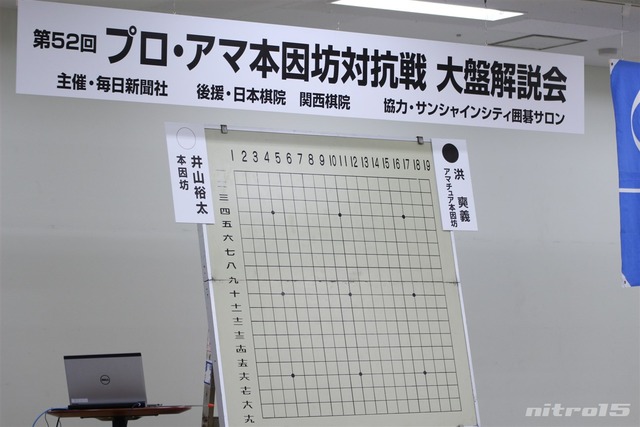 第52回 プロ・アマ本因坊対抗戦 大盤解説会
主催・毎日新聞社 後援・日本棋院 関西棋院 協力・サンシャインシティ囲碁サロン
井山裕太
本因坊
洪 爽義
アマチュア本因坊
1 2 3 4 5 6 7 8 9 10 11 12 13 14 15 16 17 18 19
一
二
三
四
五
六
七
八
九
十
十一
十二
十三
十四
十五
十六
十七
十八
十九
DELL
nitro15